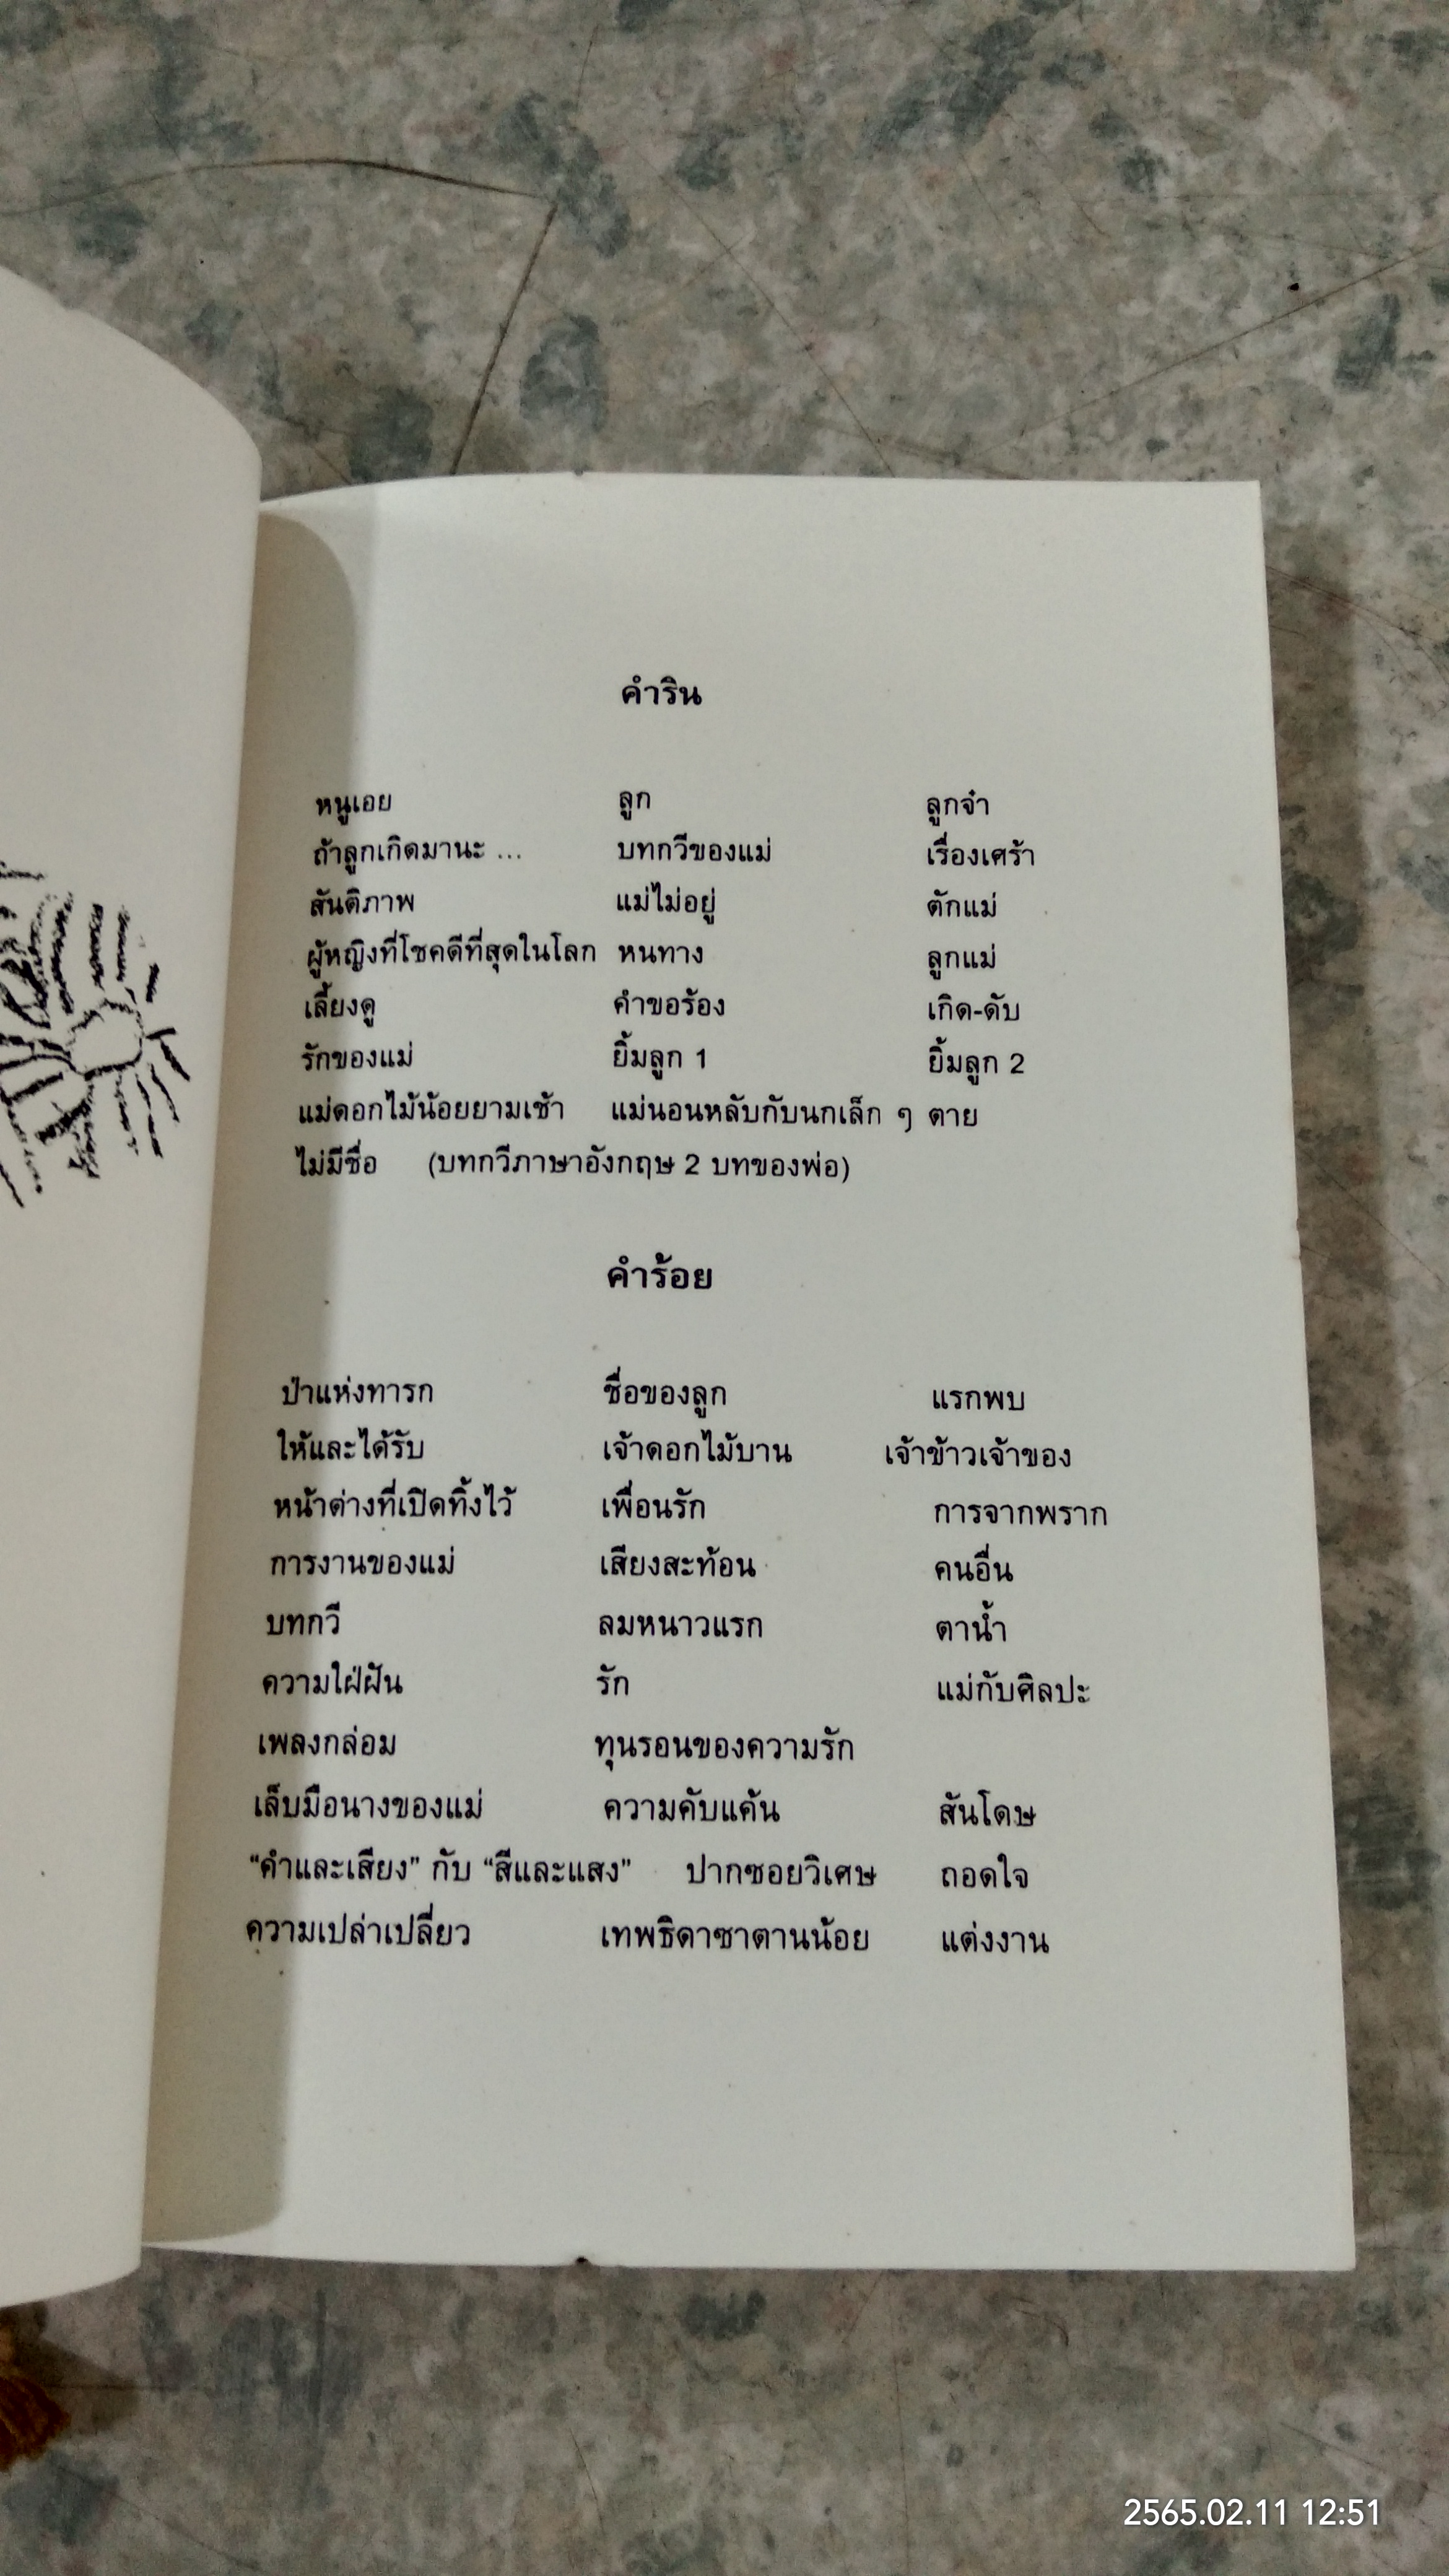 คำริน
หนูเอย ลูก ลูกจ๋า
ถ้าลูกเกิดมานะ ... บทกวีของแม่ เรื่องเศร้า
สันติภาพ แม่ไม่อยู่ ตักแม่
ผู้หญิงที่โชคดีที่สุดในโลก หนทาง ลูกแม่
เลี้ยงดู คำขอร้อง เกิด-ดับ
รักของแม่ ยิ้มลูก 1 ยิ้มลูก 2
แม่ดอกไม้น้อยยามเช้า แม่นอนหลับกับนกเล็ก ๆ ตาย
ไม่มีชื่อ (บทกวีภาษาอังกฤษ 2 บทของพ่อ)
คำร้อย
ป่าแห่งทารก ชื่อของลูก แรกพบ
ให้และได้รับ เจ้าดอกไม้บาน เจ้าข้าวเจ้าของ
หน้าต่างที่เปิดทิ้งไว้ เพื่อนรัก การจากพราก
การงานของแม่ เสียงสะท้อน คนอื่น
บทกวี ลมหนาวแรก ตาน้ำ
ความใฝ่ฝัน รัก แม่กับศิลปะ
เพลงกล่อม ทุนรอนของความรัก
เล็บมือนางของแม่ ความคับแค้น สันโดษ
“คำและเสียง” กับ “สีและแสง” ปากซอยวิเศษ ถอดใจ
ความเปล่าเปลี่ยว เทพธิดาซาตานน้อย แต่งงาน
2565.02.11 12:51